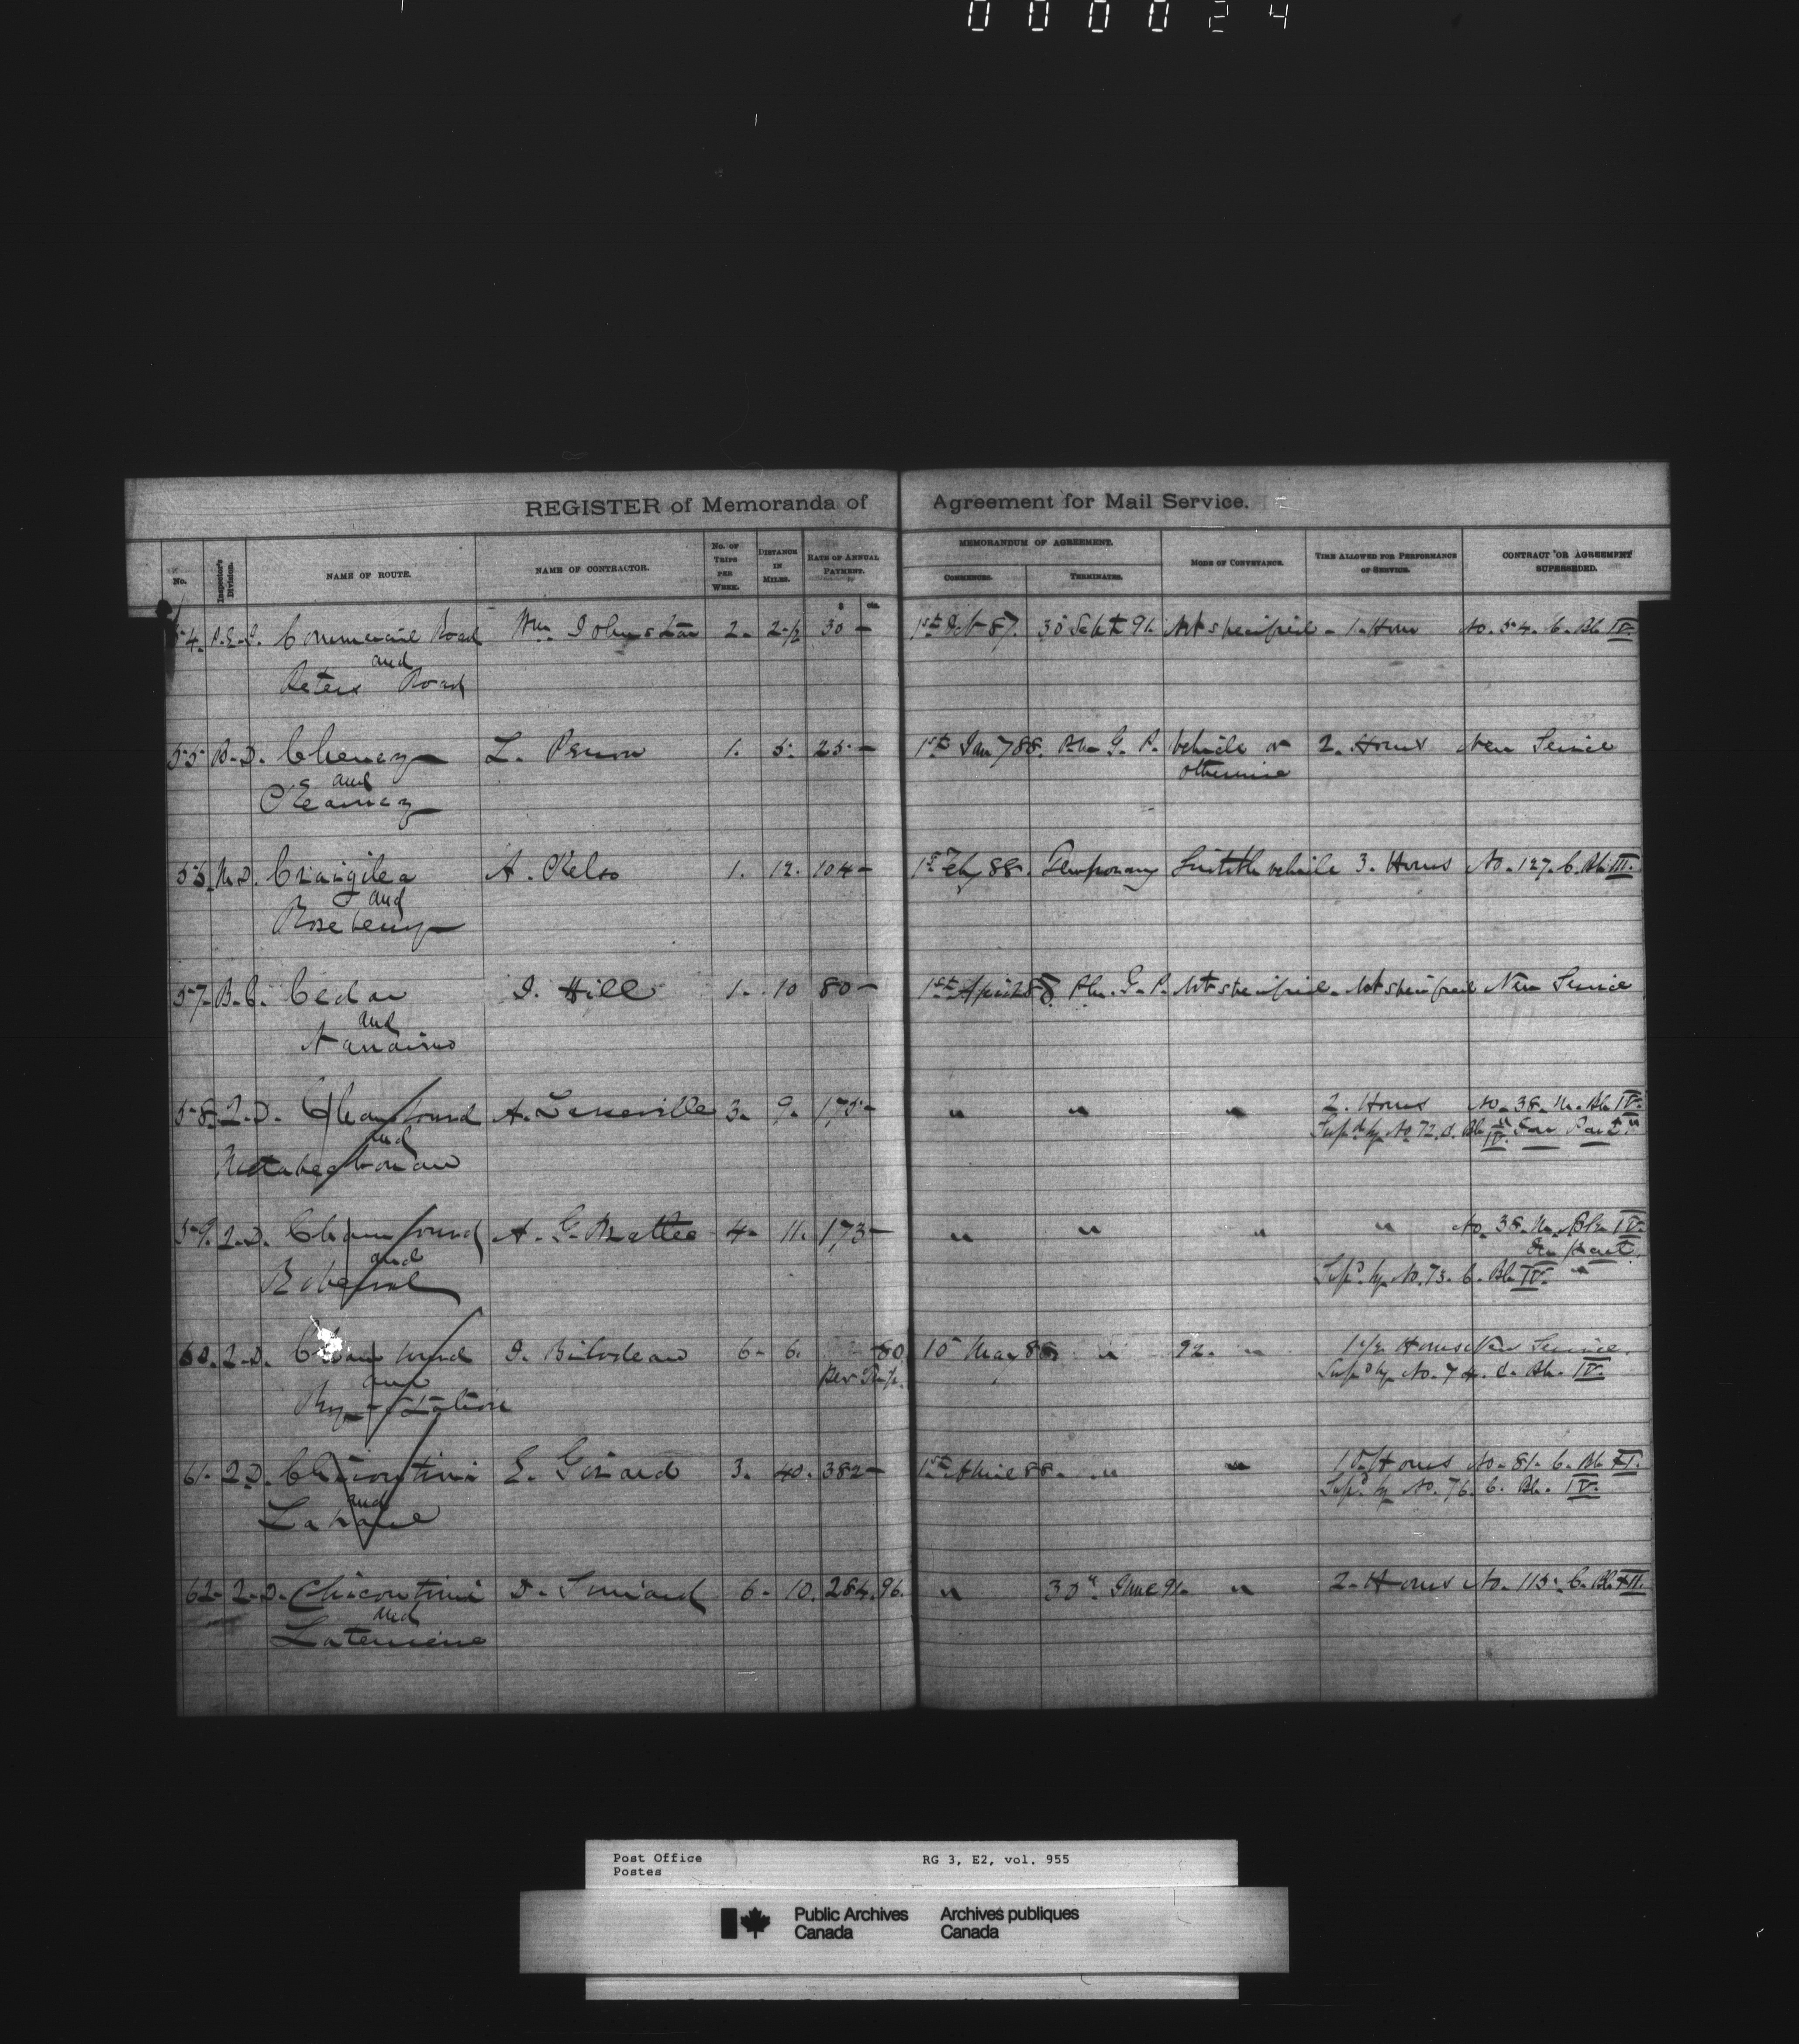 000024
REGISTER of Memoranda of Agreement for Mail Service.
No. Inspector's Division. NAME OF ROUTE. NAME OF CONTRACTOR. No. of Trips per Week. Distance in Miles. Rate of Annual Payment. $ cts. MEMORANDUM OF AGREEMENT. Commences. Terminates. Mode of Conveyance. Time Allowed for Performance of Service. CONTRACT OR AGREEMENT SUPERSEDED.
54. P.E.I. Commercial Road Wm Johnston 2. 2½ 30 - 1st Oct 87. 30 Sept 91. Not specified - 1. Hour No. 54. C. Bk IV.
and
Peters Road
55 B.D. Cheney L. Perron 1. 5. 25 - 1st Jany 88. P. G. P. Vehicle or 2. Hours New Service
and otherwise
Kearney
56. M.D. Craigilea A. Kelso 1. 12. 104 - 1st Feby 88. Temporary Suitable vehicle 3. Hours No. 127. C. Bk III.
and
Rosebery
57. B.C. Cedar J. Hill 1. 10 80 - 1st April 88. P. G. P. Not specified. Not specified New Service
and
Nanaimo
58. 2. D. Chambord A. 3. 9. 175 - " " " 2. Hours No. 38. M. Bk IV.
and Supd by No 72. C. Bk IV. " Part "
Metabechouan
59. 2. D. Chambord A. G. 4. 11. 173 - " " " " No. 38. M. Bk IV.
and In part.
Roberval Supd by No. 73. C. Bk IV. "
60. 2. D. Chambord J. Bilodeau 6. 6. 80 15 May 88 " 92. " 1½ Hours New Service.
and Per Trip. Supd by No. 74. C. Bk. IV.
Ry. Station
61. 2. D. Chicoutimi E. Girard 3. 40. 382 - 1st April 88. " " 10. Hours No. 81. C. Bk II.
and Supd by No. 76. C. Bk. IV.
62. 2. D. Chicoutimi D. Simard 6. 10. 284. 96. " 30" June 91. " 2. Hours No. 115. C. Bk III.
and
Laterriere
Post Office RG 3, E2, vol. 955
Postes
Public Archives Archives publiques
Canada Canada